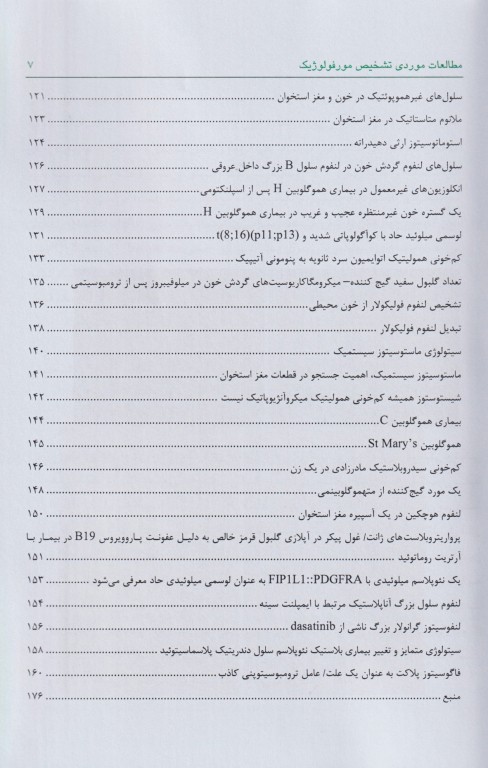 مطالعات موردی تشخیص مورفولوژیک ۷
سلول‌های غیرهموپوئتیک در خون و مغز استخوان ۱۲۱
ملانوم متاستاتیک در مغز استخوان ۱۲۳
استوماتوسیتوز ارثی دهیدراته ۱۲۴
سلول‌های لنفوم گردش خون در لنفوم سلول B بزرگ داخل عروقی ۱۲۶
انکلوزیون‌های غیرمعمول در بیماری هموگلوبین H پس از اسپلنکتومی ۱۲۷
یک گستره خون غیرمنتظره عجیب و غریب در بیماری هموگلوبین H ۱۲۹
لوسمی میلوئید حاد با کوآگولوپاتی شدید و t(8;16)(p11;p13) ۱۳۱
کم‌خونی همولیتیک اتوایمیون سرد ثانویه به پنومونی آتیپیک ۱۳۳
تعداد گلبول سفید گیج کننده– میکرومگاکاریوسیت‌های گردش خون در میلوفیبروز پس از ترومبوسیتمی ۱۳۵
تشخیص لنفوم فولیکولار از خون محیطی ۱۳۶
تبدیل لنفوم فولیکولار ۱۳۸
سیتولوژی ماستوسیتوز سیستمیک ۱۴۰
ماستوسیتوز سیستمیک، اهمیت جستجو در قطعات مغز استخوان ۱۴۱
شیستوستوز همیشه کم‌خونی همولیتیک میکروآنژیوپاتیک نیست ۱۴۲
بیماری هموگلوبین C ۱۴۴
هموگلوبین St Mary’s ۱۴۵
کم‌خونی سیدروبلاستیک مادرزادی در یک زن ۱۴۶
یک مورد گیج‌کننده از متهموگلوبینمی ۱۴۸
لنفوم هوچکین در یک آسپیره مغز استخوان ۱۵۰
پرواریتروبلاست‌های ژانت/ غول پیکر در آپلازی گلبول قرمز خالص به دلیل عفونت پاروویروس B19 در بیمار با
آرتریت روماتوئید ۱۵۱
یک نئوپلاسم میلوئیدی با FIP1L1::PDGFRA به عنوان لوسمی میلوئیدی حاد معرفی می‌شود ۱۵۳
لنفوم سلول بزرگ آناپلاستیک مرتبط با ایمپلنت سینه ۱۵۴
لنفوسیتوز گرانولار بزرگ ناشی از dasatinib ۱۵۶
سیتولوژی متمایز و تغییر بیماری بلاستیک نئوپلاسم سلول دندریتیک پلاسماسیتوئید ۱۵۸
فاگوسیتوز پلاکت به عنوان یک علت/ عامل ترومبوسیتوپنی کاذب ۱۶۰
منبع ۱۷۶